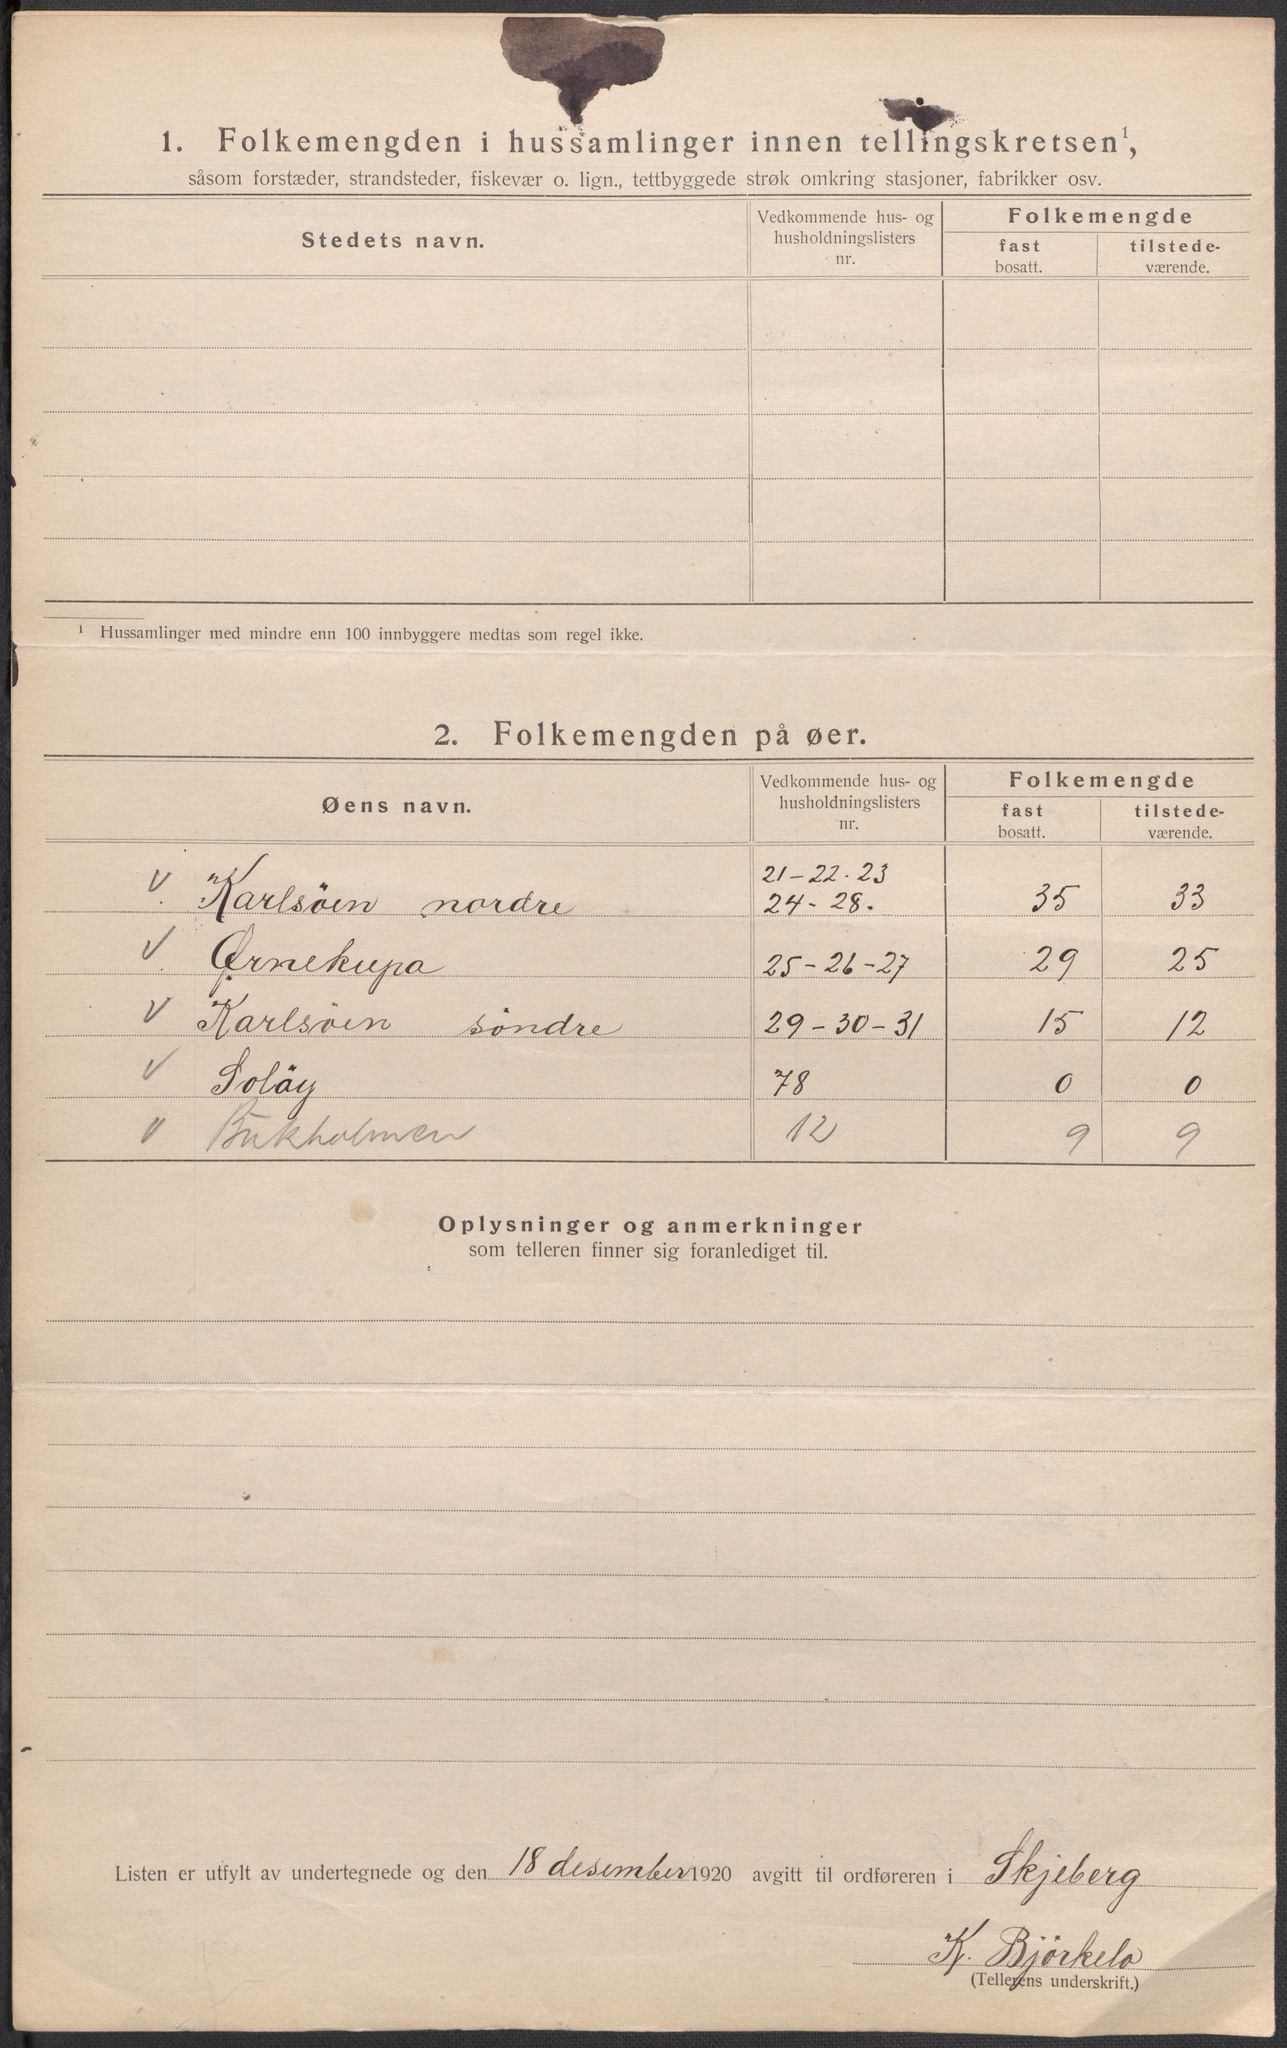 1. Folkemengden i hussamlinger innen tellingskretsen¹,
såsom forstæder, strandsteder, fiskevær o. lign., tettbyggede strøk omkring stasjoner, fabrikker osv.
Stedets navn.
Vedkommende hus- og husholdningslisters nr.
Folkemengde
fast bosatt.
tilstede-værende.
¹ Hussamlinger med mindre enn 100 innbyggere medtas som regel ikke.
2. Folkemengden på øer.
Øens navn.
Vedkommende hus- og husholdningslisters nr.
Folkemengde
fast bosatt.
tilstede-værende.
21-22.23
V Karlsöen nordre 24-28. 35 33
V Ørnekupa 25-26-27 29 25
V Karlsöen söndre 29-30-31 15 12
V Solöy 78 0 0
V Bukholmen 12 9 9
Oplysninger og anmerkninger
som telleren finner sig foranlediget til.
Listen er utfylt av undertegnede og den 18 desember 1920 avgitt til ordføreren i Skjeberg
K. Björkelo
(Tellerens underskrift.)